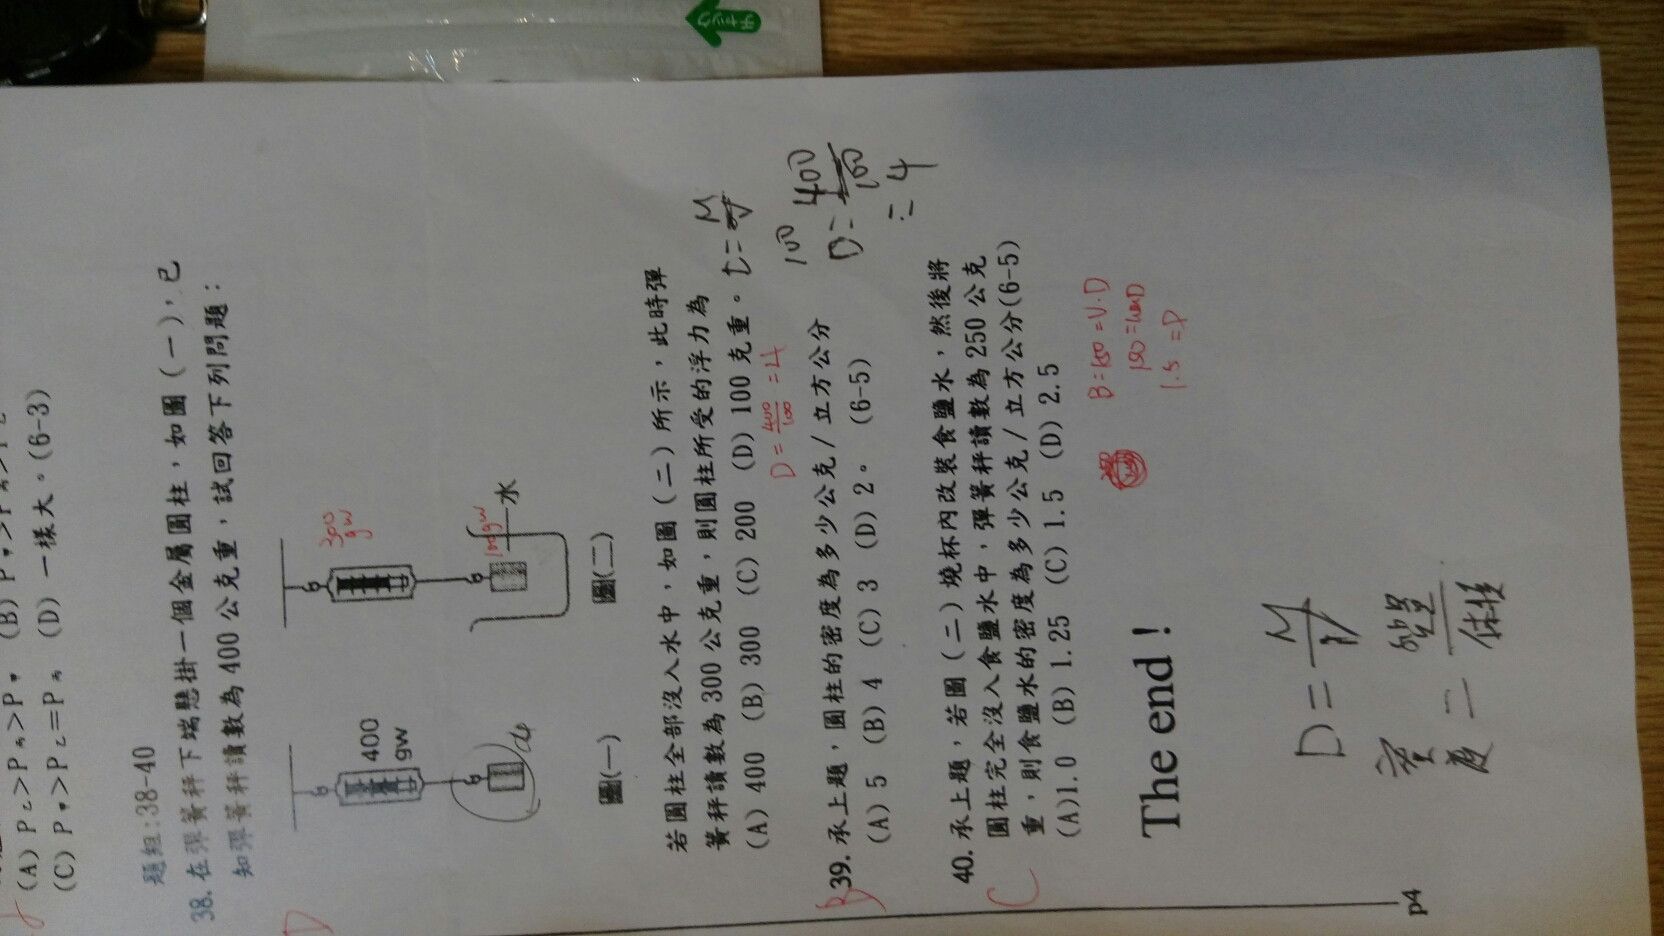 (A) P乙>P丙>P甲 (B) P甲>P丙>P乙
(C) P甲>P乙=P丙 (D) 一樣大。(6-3)
題組:38-40
D
38. 在彈簧秤下端懸掛一個金屬圓柱，如圖(一)，已
知彈簧秤讀數為 400 公克重，試回答下列問題：
400
gw
300
gw
100gw
水
圖(一)
圖(二)
若圓柱全部沒入水中，如圖(二)所示，此時彈
簧秤讀數為 300 公克重，則圓柱所受的浮力為
(A) 400 (B) 300 (C) 200 (D) 100 克重。
D=M/V
D=400/100=4
100
B
39. 承上題，圓柱的密度為多少公克/立方公分
(A) 5 (B) 4 (C) 3 (D) 2。 (6-5)
D=400/100
=4
C
40. 承上題，若圖(二)燒杯內改裝食鹽水，然後將
圓柱完全沒入食鹽水中，彈簧秤讀數為 250 公克
重，則食鹽水的密度為多少公克/立方公分(6-5)
(A)1.0 (B) 1.25 (C) 1.5 (D) 2.5
B=150=V.D
150=100D
1.5=D
The end！
D=M/V
密度=質量/体積
p4